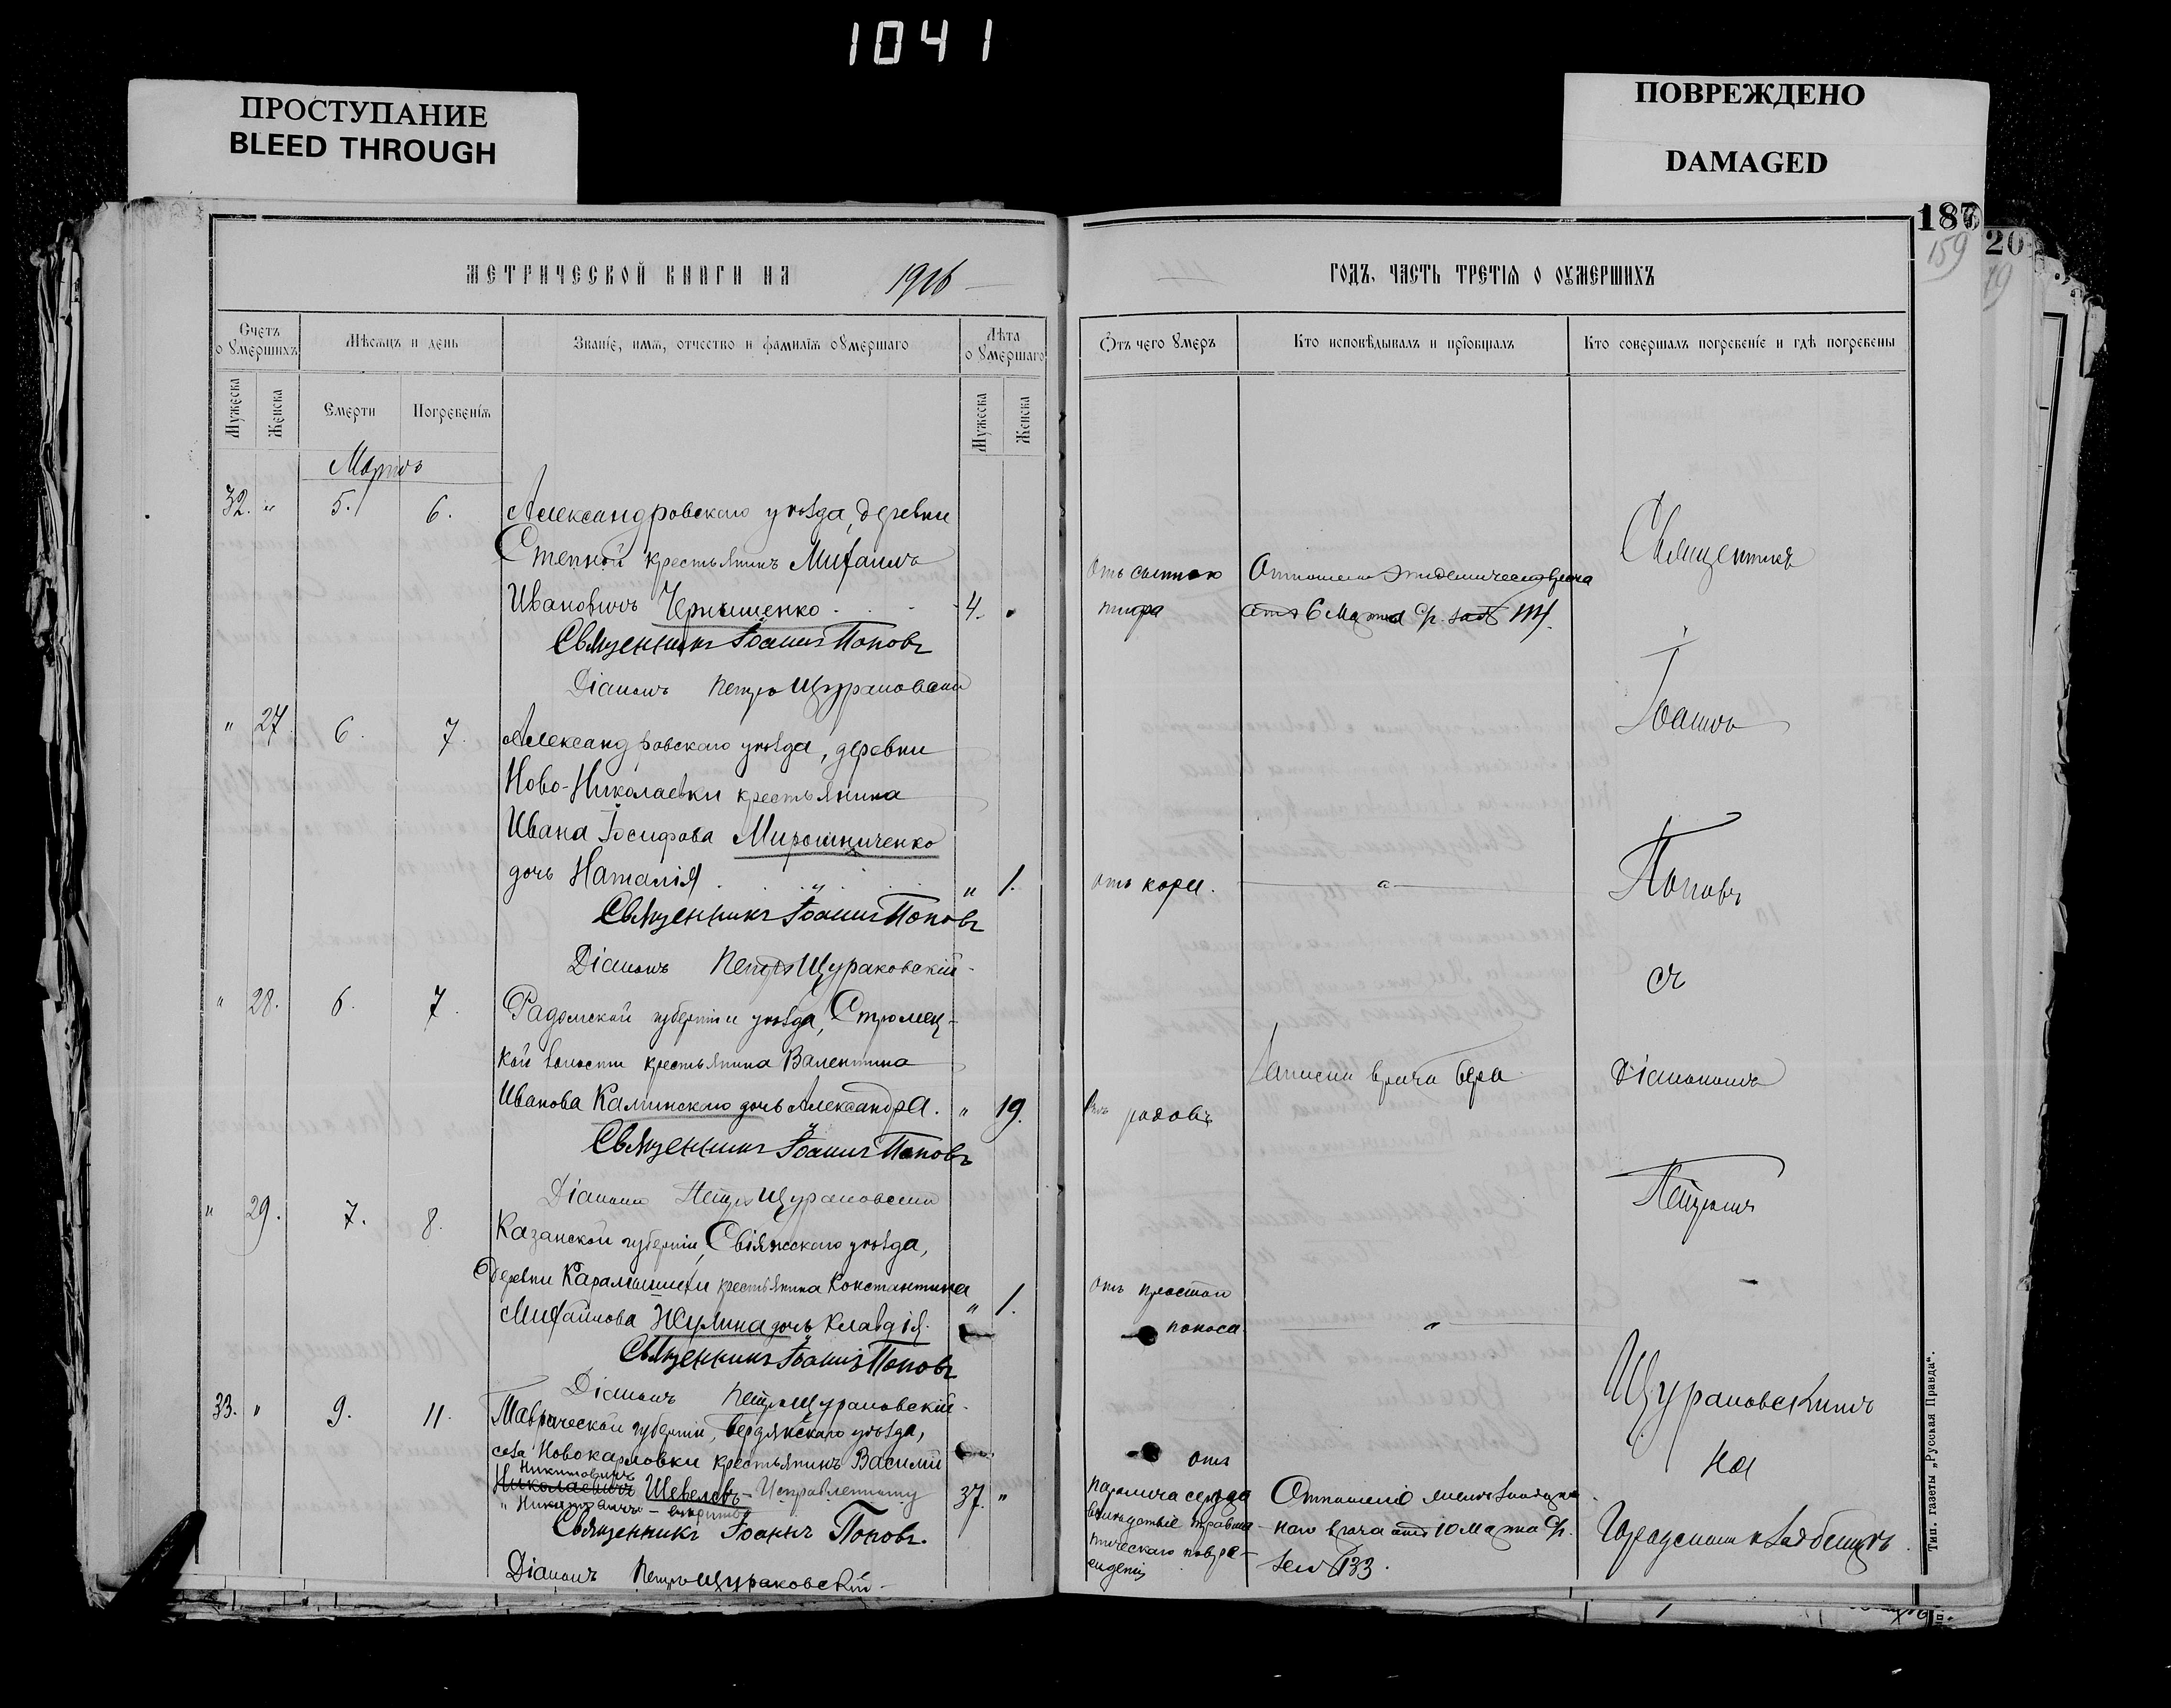 1041
ПРОСТУПАНИЕ
BLEED THROUGH
ПОВРЕЖДЕНО
DAMAGED
187
159
20
19
МЕТРИЧЕСКОЙ КНИГИ НА 1916
ГОДЪ, ЧАСТЬ ТРЕТІЯ О ОУМЕРШИХЪ
Счетъ оумершихъ
Мѣсяцъ и день
Званіе, имя, отчество и фамилія оумершаго
Лѣта оумершаго
Отъ чего оумеръ
Кто исповѣдывалъ и пріобщалъ
Кто совершалъ погребеніе и гдѣ погребены
Мужеска
Женска
Смерти
Погребенія
Мужеска
Женска
Мартъ
32. " 5. 6. Александровскаго уѣзда, деревни
Степной крестьянинъ Михаилъ
Ивановичъ Чернышенко 4.
Священникъ Іоаннъ Поповъ
Діаконъ Петръ Щураковскій
отъ сыпного
тифа
Отношеніе эпидемическ. врача
отъ 6 Марта с/г. за №
" 27. 6. 7. Александровскаго уѣзда, деревни
Ново-Николаевки крестьянина
Ивана Іосифова Мирошниченко
дочь Наталія " 1.
Священникъ Іоаннъ Поповъ
Діаконъ Петръ Щураковскій
отъ кори.
" 28. 6. 7. Радомской губерніи и уѣзда, Стромец-
кой волости крестьянина Валентина
Иванова Каминскаго дочь Александра. " 19.
Священникъ Іоаннъ Поповъ
Діаконъ Петръ Щураковскій
Отъ родовъ
Записки врача Бера
" 29. 7. 8. Казанской губерніи, Свіяжскаго уѣзда,
деревни Карамышихи крестьянина Константина
Михайлова Жулина дочь Клавдія. " 1.
Священникъ Іоаннъ Поповъ
Діаконъ Петръ Щураковскій
отъ простого
поноса.
33. " 9. 11. Таврической губерніи, Бердянскаго уѣзда,
села Новокарловки крестьянинъ Василій
Никитовичъ
Николаевичъ Шевелевъ - Исправленному 37. "
"Никитовичъ" - вѣрить
Священникъ Іоаннъ Поповъ.
Діаконъ Петръ Щураковскій
отъ
паралича сердца
вслѣдствіе травма-
тическаго повре-
жденія
Отношеніе
наго врача отъ 10 Марта с/г.
за № 133.
Священникъ
Іоаннъ
Поповъ
съ
Діакономъ
Петромъ
Щураковскимъ
на
Городскомъ кладбищѣ.
Тип. газеты „Русская Правда".